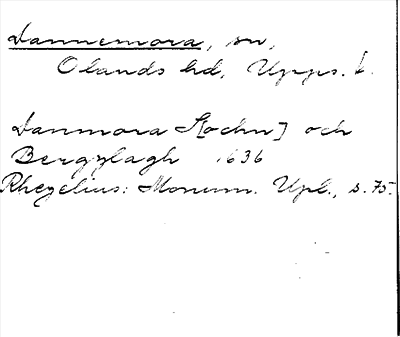 Dannemora, sn,
Olands hd, Upps. l.
Danmora Sochn] och
Bergzlagh 1636
Rhezelius: Monum. Upl., s. 75.